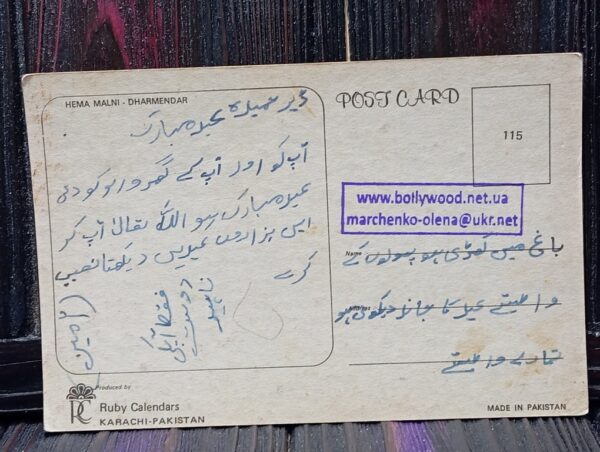 HEMA MALNI - DHARMENDAR
ڈیر حمیدہ عید مبارک
آپ کو اور آپ کے گھر والو کو دعی
عید مبارک ہو اللہ تعالیٰ آپ کو
ایسی ہزاروں عیدیں دیکھنا نصیب
کرے
(آمین)
فقط آپکی
دوست
ناہید
Produced by
Ruby Calendars
KARACHI-PAKISTAN
POST CARD
115
www.bollywood.net.ua
marchenko-olena@ukr.net
Name
باغ میں کھڑی ہو پھولوں کے
Address
واسطے عید کا چاند دیکھو
تمارے واسطے
MADE IN PAKISTAN